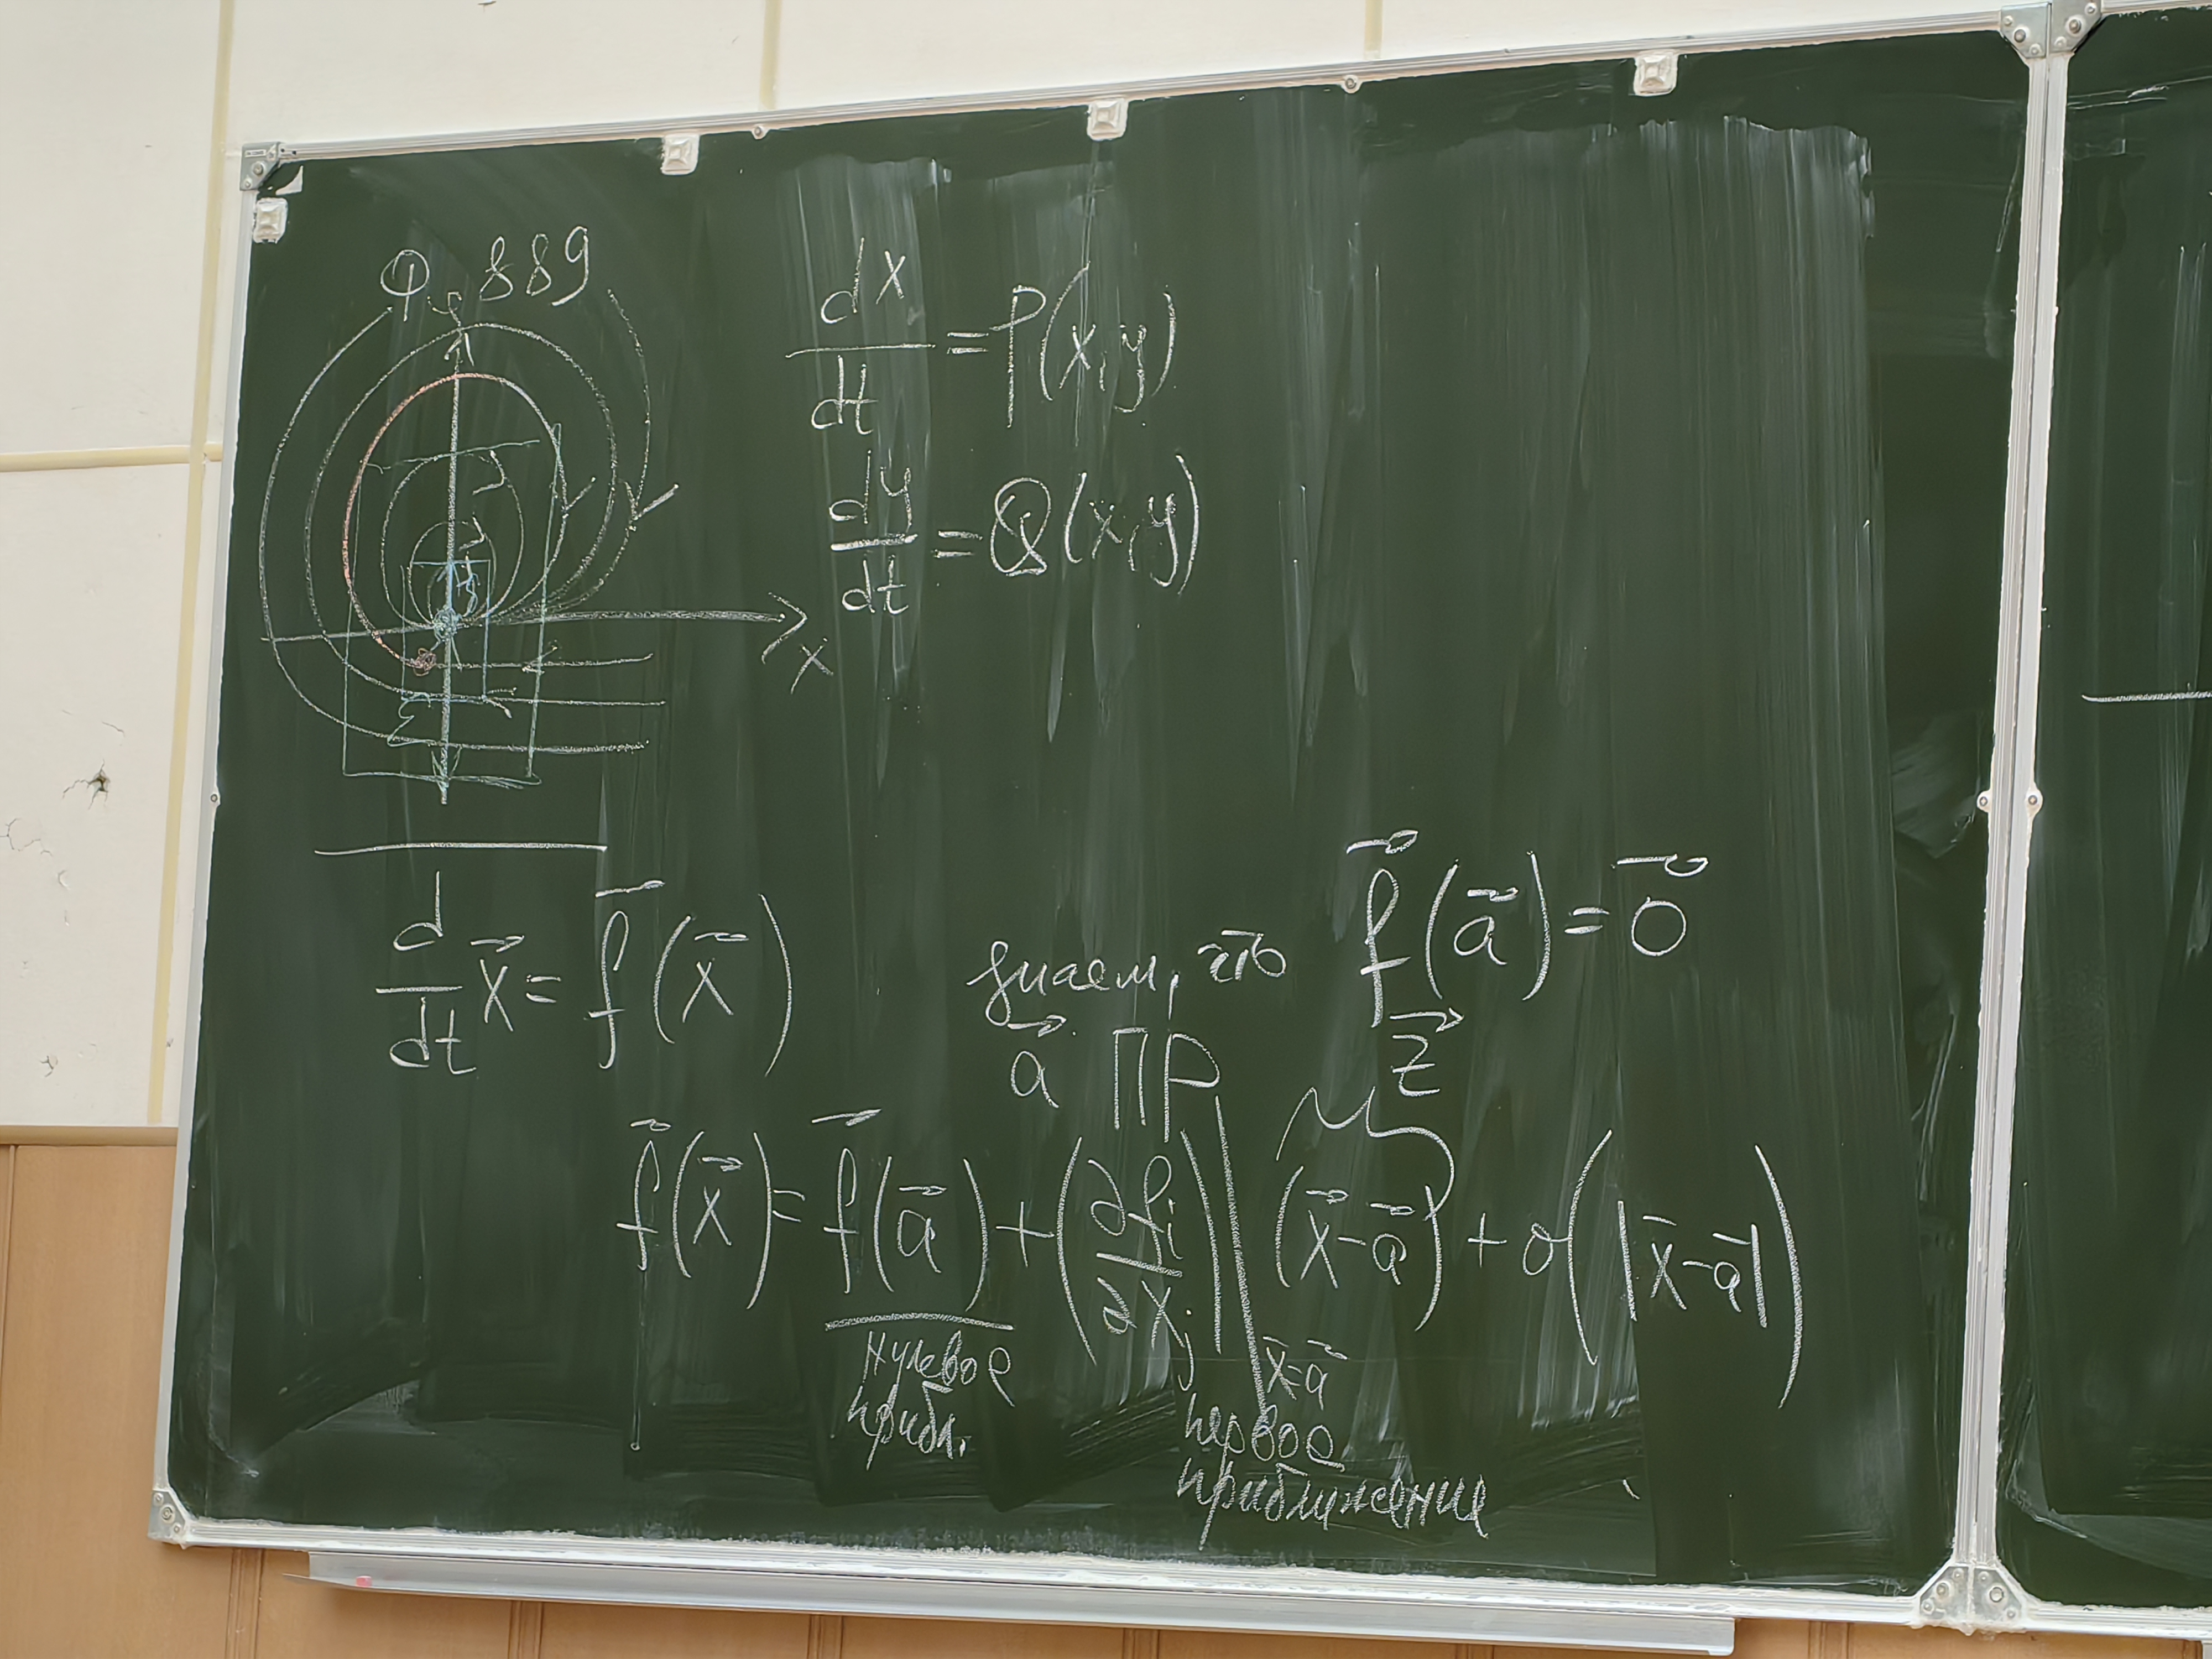 Ф 889
y
x
ε
δ
dx/dt = P(x,y)
dy/dt = Q(x,y)
d/dt x⃗ = f⃗(x⃗)
знаем, что f⃗(a⃗) = 0⃗
a⃗ ПР
z⃗
f⃗(x⃗) = f⃗(a⃗) + (∂fᵢ/∂xⱼ)| (x⃗-a⃗) + o(|x⃗-a⃗|)
x⃗=a⃗
нулевое
прибл.
первое
приближение